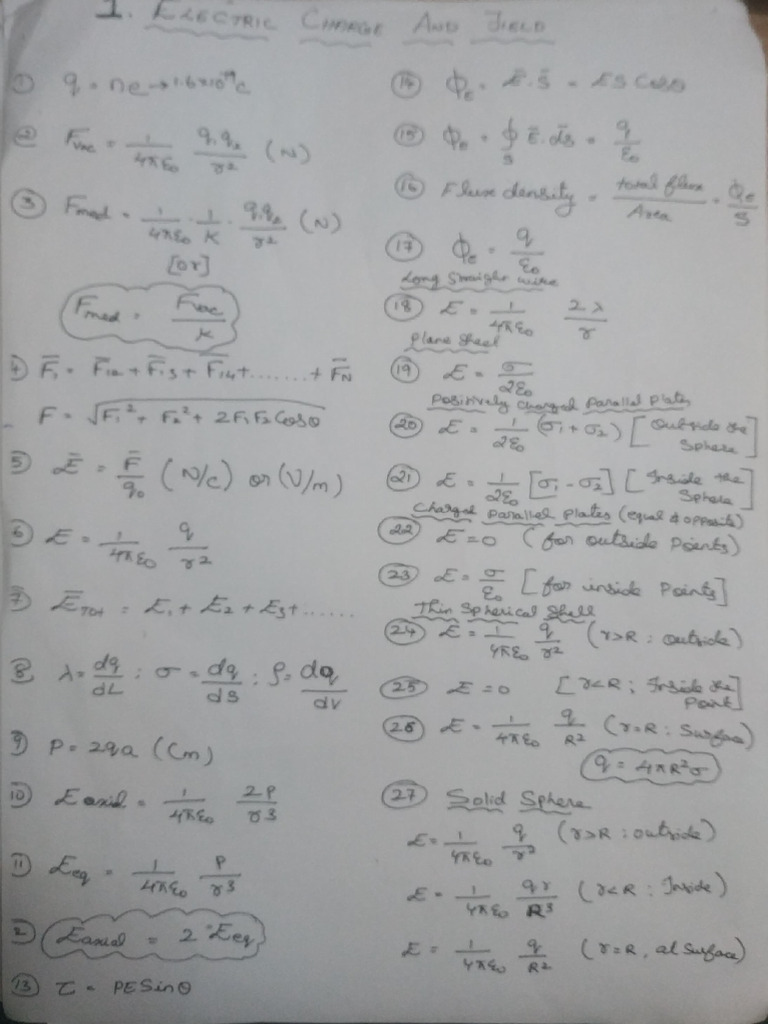 1. ELECTRIC CHARGE AND FIELD
① q = ne → 1.6×10⁻¹⁹c
② Fvac = 1/4πε₀ q₁q₂/r² (N)
③ Fmed = 1/4πε₀ · 1/K · q₁q₂/r² (N)
[or]
Fmed = Fvac/K
4) F̄₁ = F̄₁₂ + F̄₁₃ + F̄₁₄ + ....... + F̄N
F = √F₁² + F₂² + 2F₁F₂ Cosθ
5) Ē = F̄/q₀ (N/c) or (V/m)
6) E = 1/4πε₀ q/r²
7) ĒTot = E₁ + E₂ + E₃ + ......
8 λ = dq/dL ; σ = dq/ds ; ρ = dq/dv
9) P = 2qa (Cm)
10) E axial = 1/4πε₀ 2P/r3
11) Eeq = 1/4πε₀ P/r3
2) Eaxial = 2 Eeq
13) τ = PE Sinθ
⑭ ϕe = Ē.S̄ = ES Cosθ
⑮ ϕe = ∮s Ē.ds̄ = q/ε₀
⑯ Flux density = total flux/Area = ϕe/S
⑰ ϕe = q/ε₀
Long Straight wire
⑱ E = 1/4πε₀ 2λ/r
Plane Sheet
⑲ E = σ/2ε₀
Positively Charged Parallel Plates
⑳ E = 1/2ε₀ (σ₁ + σ₂) [Outside the Sphere]
㉑ E = 1/2ε₀ [σ₁ - σ₂] [Inside the Sphere]
Charged Parallel Plates (equal & opposite)
㉒ E = 0 (for outside Points)
㉓ E = σ/ε₀ [for inside Points]
Thin Spherical Shell
㉔ E = 1/4πε₀ q/r² (r>R : outside)
㉕ E = 0 [r<R ; Inside the Point]
㉖ E = 1/4πε₀ q/R² (r=R : Surface)
q = 4πR²σ
㉗ Solid Sphere
E = 1/4πε₀ q/r² (r>R : outside)
E = 1/4πε₀ qr/R³ (r<R : Inside)
E = 1/4πε₀ q/R² (r=R, at Surface)